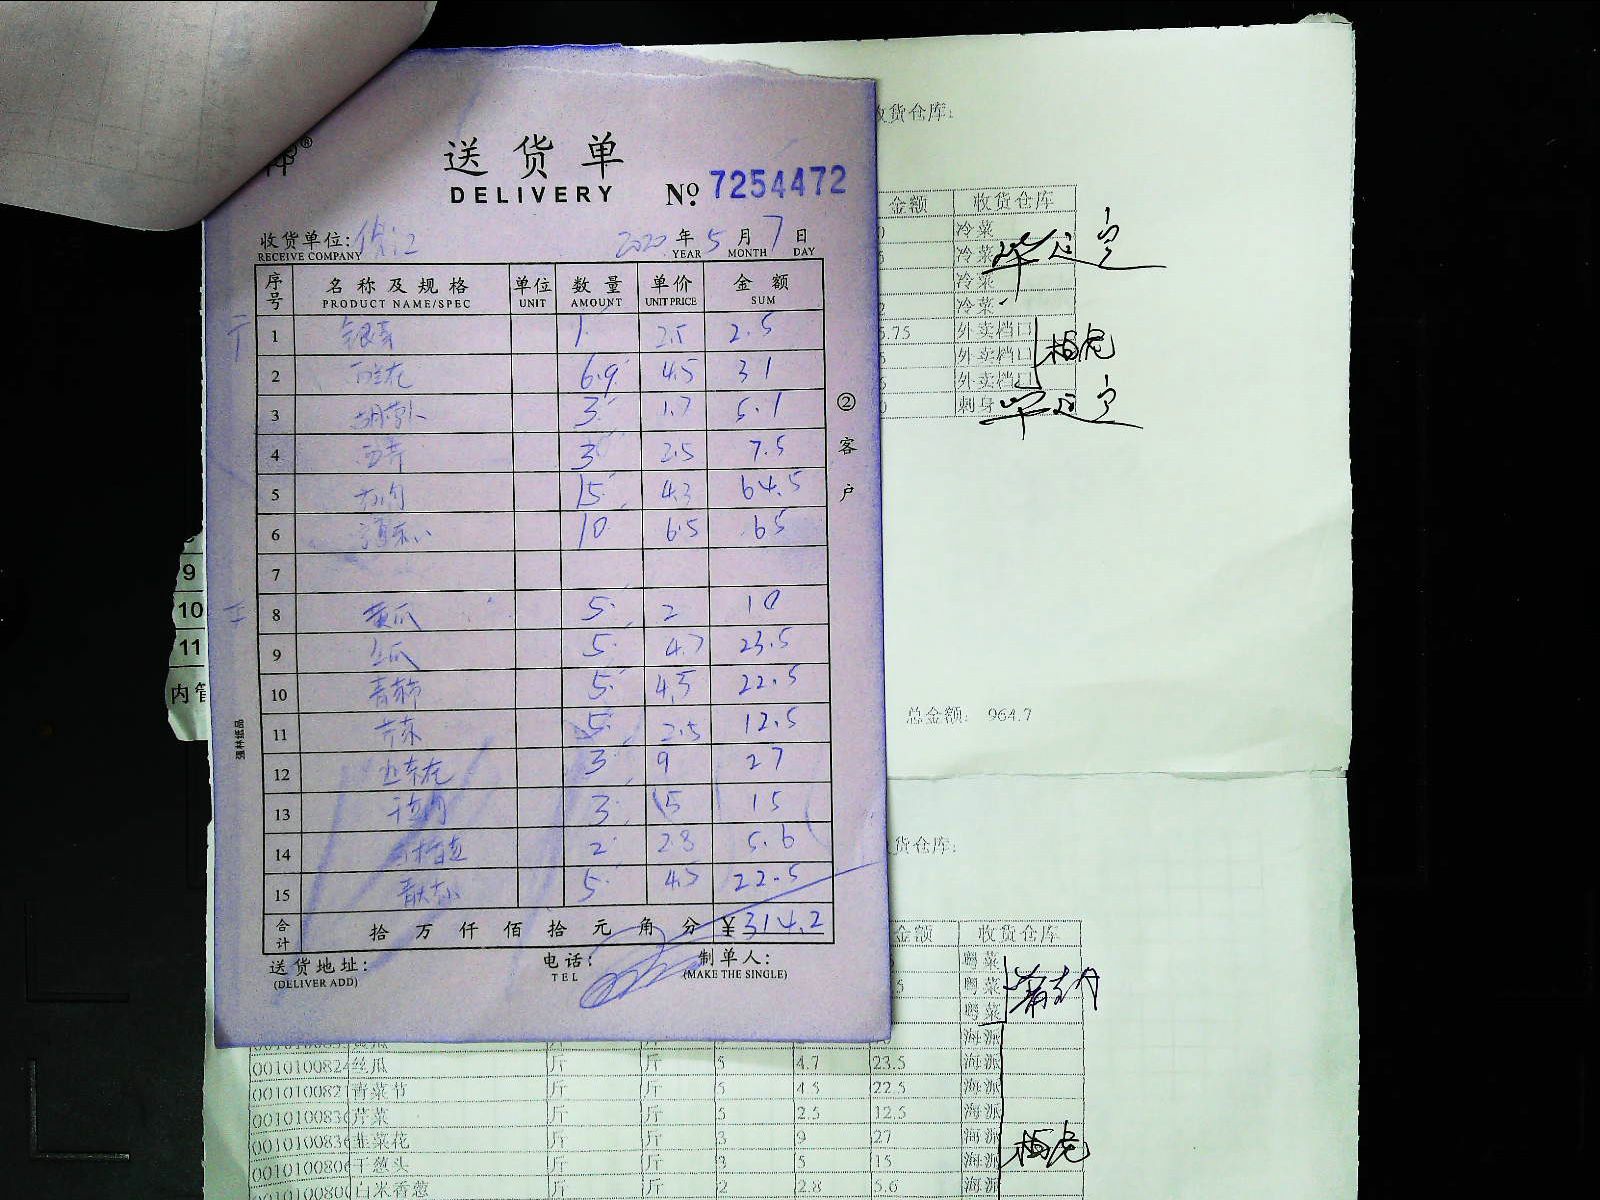 送货单
DELIVERY
№ 7254472
收货单位:
RECEIVE COMPANY
2020 年 5 月 7 日
YEAR MONTH DAY
序号 名称及规格 单位 数量 单价 金额
PRODUCT NAME/SPEC UNIT AMOUNT UNIT PRICE SUM
1 银芽 1 2.5 2.5
2 西兰花 6.9 4.5 31
3 胡萝卜 3 1.7 5.1
4 西芹 3 2.5 7.5
5 15 4.3 64.5
6 10 6.5 65
7
8 黄瓜 5 2 10
9 丝瓜 5 4.7 23.5
10 青菜节 5 4.5 22.5
11 芹菜 5 2.5 12.5
12 韭菜花 3 9 27
13 干葱头 3 5 15
14 2 2.8 5.6
15 5 4.5 22.5
合计 拾 万 仟 佰 拾 元 角 分 ¥314.2
送货地址:
(DELIVER ADD)
电话:
TEL
制单人:
(MAKE THE SINGLE)
②客户
强林纸品
9
10
11
内管
收货仓库:
金额 收货仓库
冷菜
冷菜
冷菜
冷菜
5.75 外卖档口
外卖档口
外卖档口
刺身
总金额: 964.7
货仓库:
金额 收货仓库
粤菜
粤菜
粤菜
海派
0010100824 丝瓜 斤 斤 5 4.7 23.5 海派
001010082 青菜节 斤 斤 5 4.5 22.5 海派
001010083 芹菜 斤 斤 5 2.5 12.5 海派
001010083 韭菜花 斤 斤 3 9 27 海派
001010080 干葱头 斤 斤 3 5 15 海派
001010080 白米香葱 斤 斤 2 2.8 5.6 海派